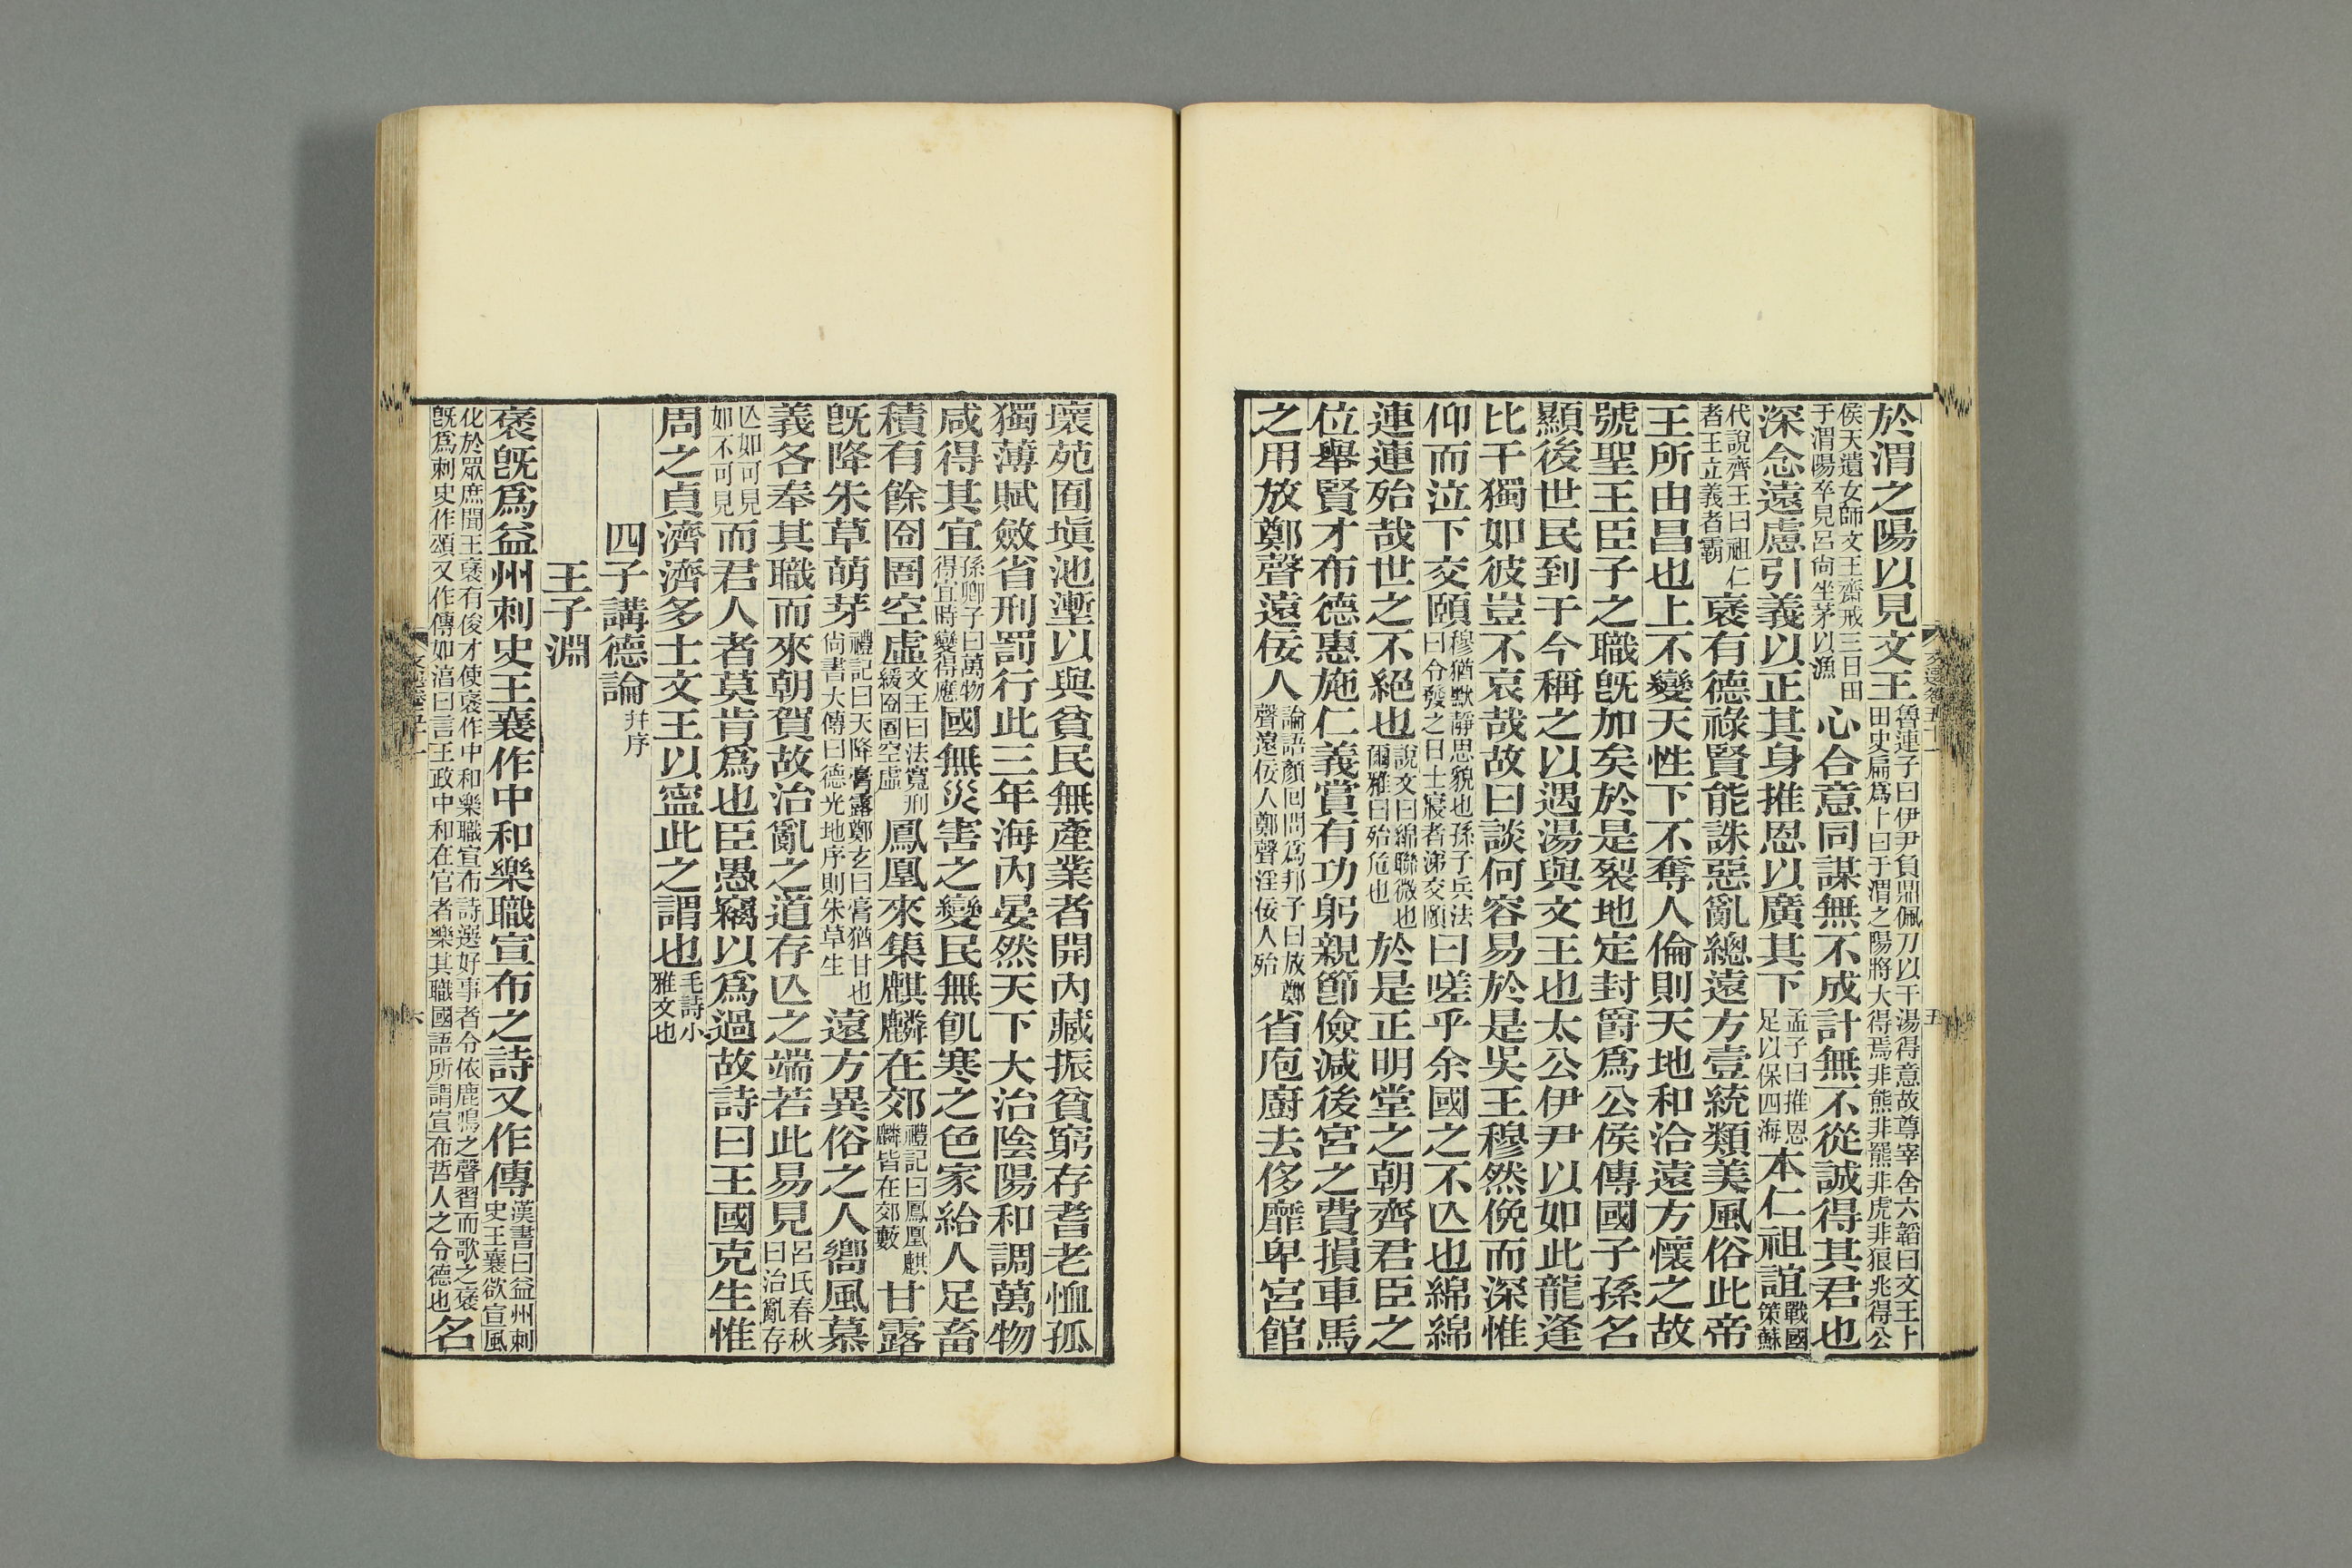 於渭之陽以見文王魯連子曰伊尹負鼎佩刀以干湯得意故尊宰舍六韜曰文王卜田史扁爲卜曰于渭之陽將大得焉非熊非羆非虎非狼兆得公
侯天遺女師文王齋戒三日田于渭陽卒見呂尙坐茅以漁心合意同謀無不成計無不從誠得其君也
深念遠慮引義以正其身推恩以廣其下孟子曰推恩足以保四海本仁祖誼戰國策蘇
代說齊王曰祖仁者王立義者霸襃有德祿賢能誅惡亂總遠方壹統類美風俗此帝
王所由昌也上不變天性下不奪人倫則天地和洽遠方懷之故
號聖王臣子之職旣加矣於是裂地定封爵爲公侯傳國子孫名
顯後世民到于今稱之以遇湯與文王也太公伊尹以如此龍逢
比干獨如彼豈不哀哉故曰談何容易於是吳王穆然俛而深惟
仰而泣下交頤穆猶默靜思貌也孫子兵法曰令發之日士寢者涕交頤曰嗟乎余國之不亾也綿綿
連連殆哉世之不絕也說文曰綿聯微也爾雅曰殆危也於是正明堂之朝齊君臣之
位舉賢才布德惠施仁義賞有功躬親節儉減後宮之費損車馬
之用放鄭聲遠佞人論語顏回問爲邦子曰放鄭聲遠佞人鄭聲淫佞人殆省庖廚去侈靡卑宮館
文選卷五十一
五
壞苑囿塡池壍以與貧民無產業者開內藏振貧窮存耆老恤孤
獨薄賦斂省刑罰行此三年海內晏然天下大治陰陽和調萬物
咸得其宜孫卿子曰萬物得宜時變得應國無災害之變民無飢寒之色家給人足畜
積有餘囹圄空虛文王曰法寬刑緩囹圄空虛鳳凰來集麒麟在郊禮記曰鳳凰麒麟皆在郊藪甘露
旣降朱草萌芽禮記曰天降膏露鄭玄曰膏猶甘也尙書大傳曰德光地序則朱草生遠方異俗之人嚮風慕
義各奉其職而來朝賀故治亂之道存亾之端若此易見呂氏春秋曰治亂存
亾如可見如不可見而君人者莫肯爲也臣愚竊以爲過故詩曰王國克生惟
周之貞濟濟多士文王以寧此之謂也毛詩小雅文也
四子講德論幷序
王子淵
襃旣爲益州刺史王襄作中和樂職宣布之詩又作傳漢書曰益州刺史王襄欲宣風
化於眾庶聞王襃有俊才使襃作中和樂職宣布詩選好事者令依鹿鳴之聲習而歌之襃旣爲刺史作頌又作傳如淳曰言王政中和在官者樂其職國語所謂宣布哲人之令德也名
文選卷五十一
六